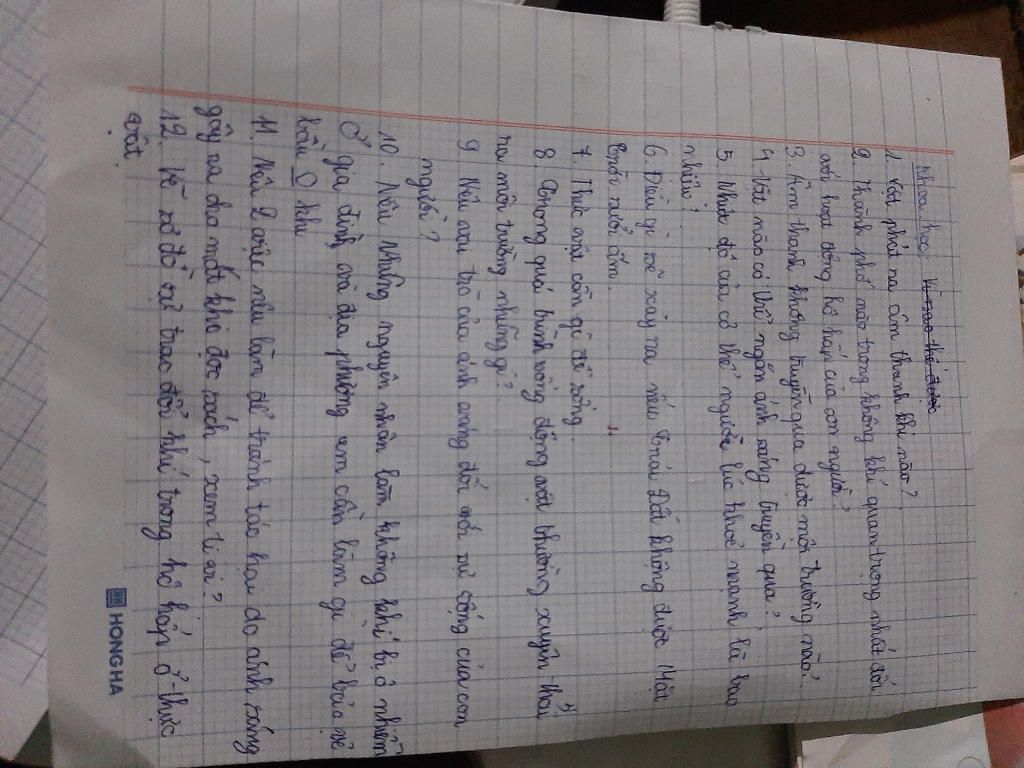 Khoa học: Vì sao thế được
1. Vật phát ra âm thanh khi nào?
2. Thành phố nào trong không khí quan trọng nhất đối
với hoạt động hô hấp của con người?
3. Âm thanh không truyền qua được môi trường nào?
4. Vật nào có thể ngăn ánh sáng truyền qua?
5. Nhiệt độ của cơ thể người lúc khoẻ mạnh là bao
nhiêu?
6. Điều gì sẽ xảy ra nếu Trái Đất không được Mặt
trời sưởi ấm.
7. Thực vật cần gì để sống.
8. Trong quá trình sống động vật thường xuyên thải
ra môi trường những gì?
9 Nêu vai trò của ánh sáng đối với sự sống của con
người?
10. Nêu những nguyên nhân làm không khí bị ô nhiễm
Ở gia đình và địa phương em cần làm gì để bảo vệ
bầu O khu
11. Nêu 2 việc nên làm để tránh tác hại do ánh sáng
gây ra cho mắt khi đọc sách, xem ti vi?
12. Vẽ sơ đồ sự trao đổi khí trong hô hấp ở thực
vật.
HONG HA